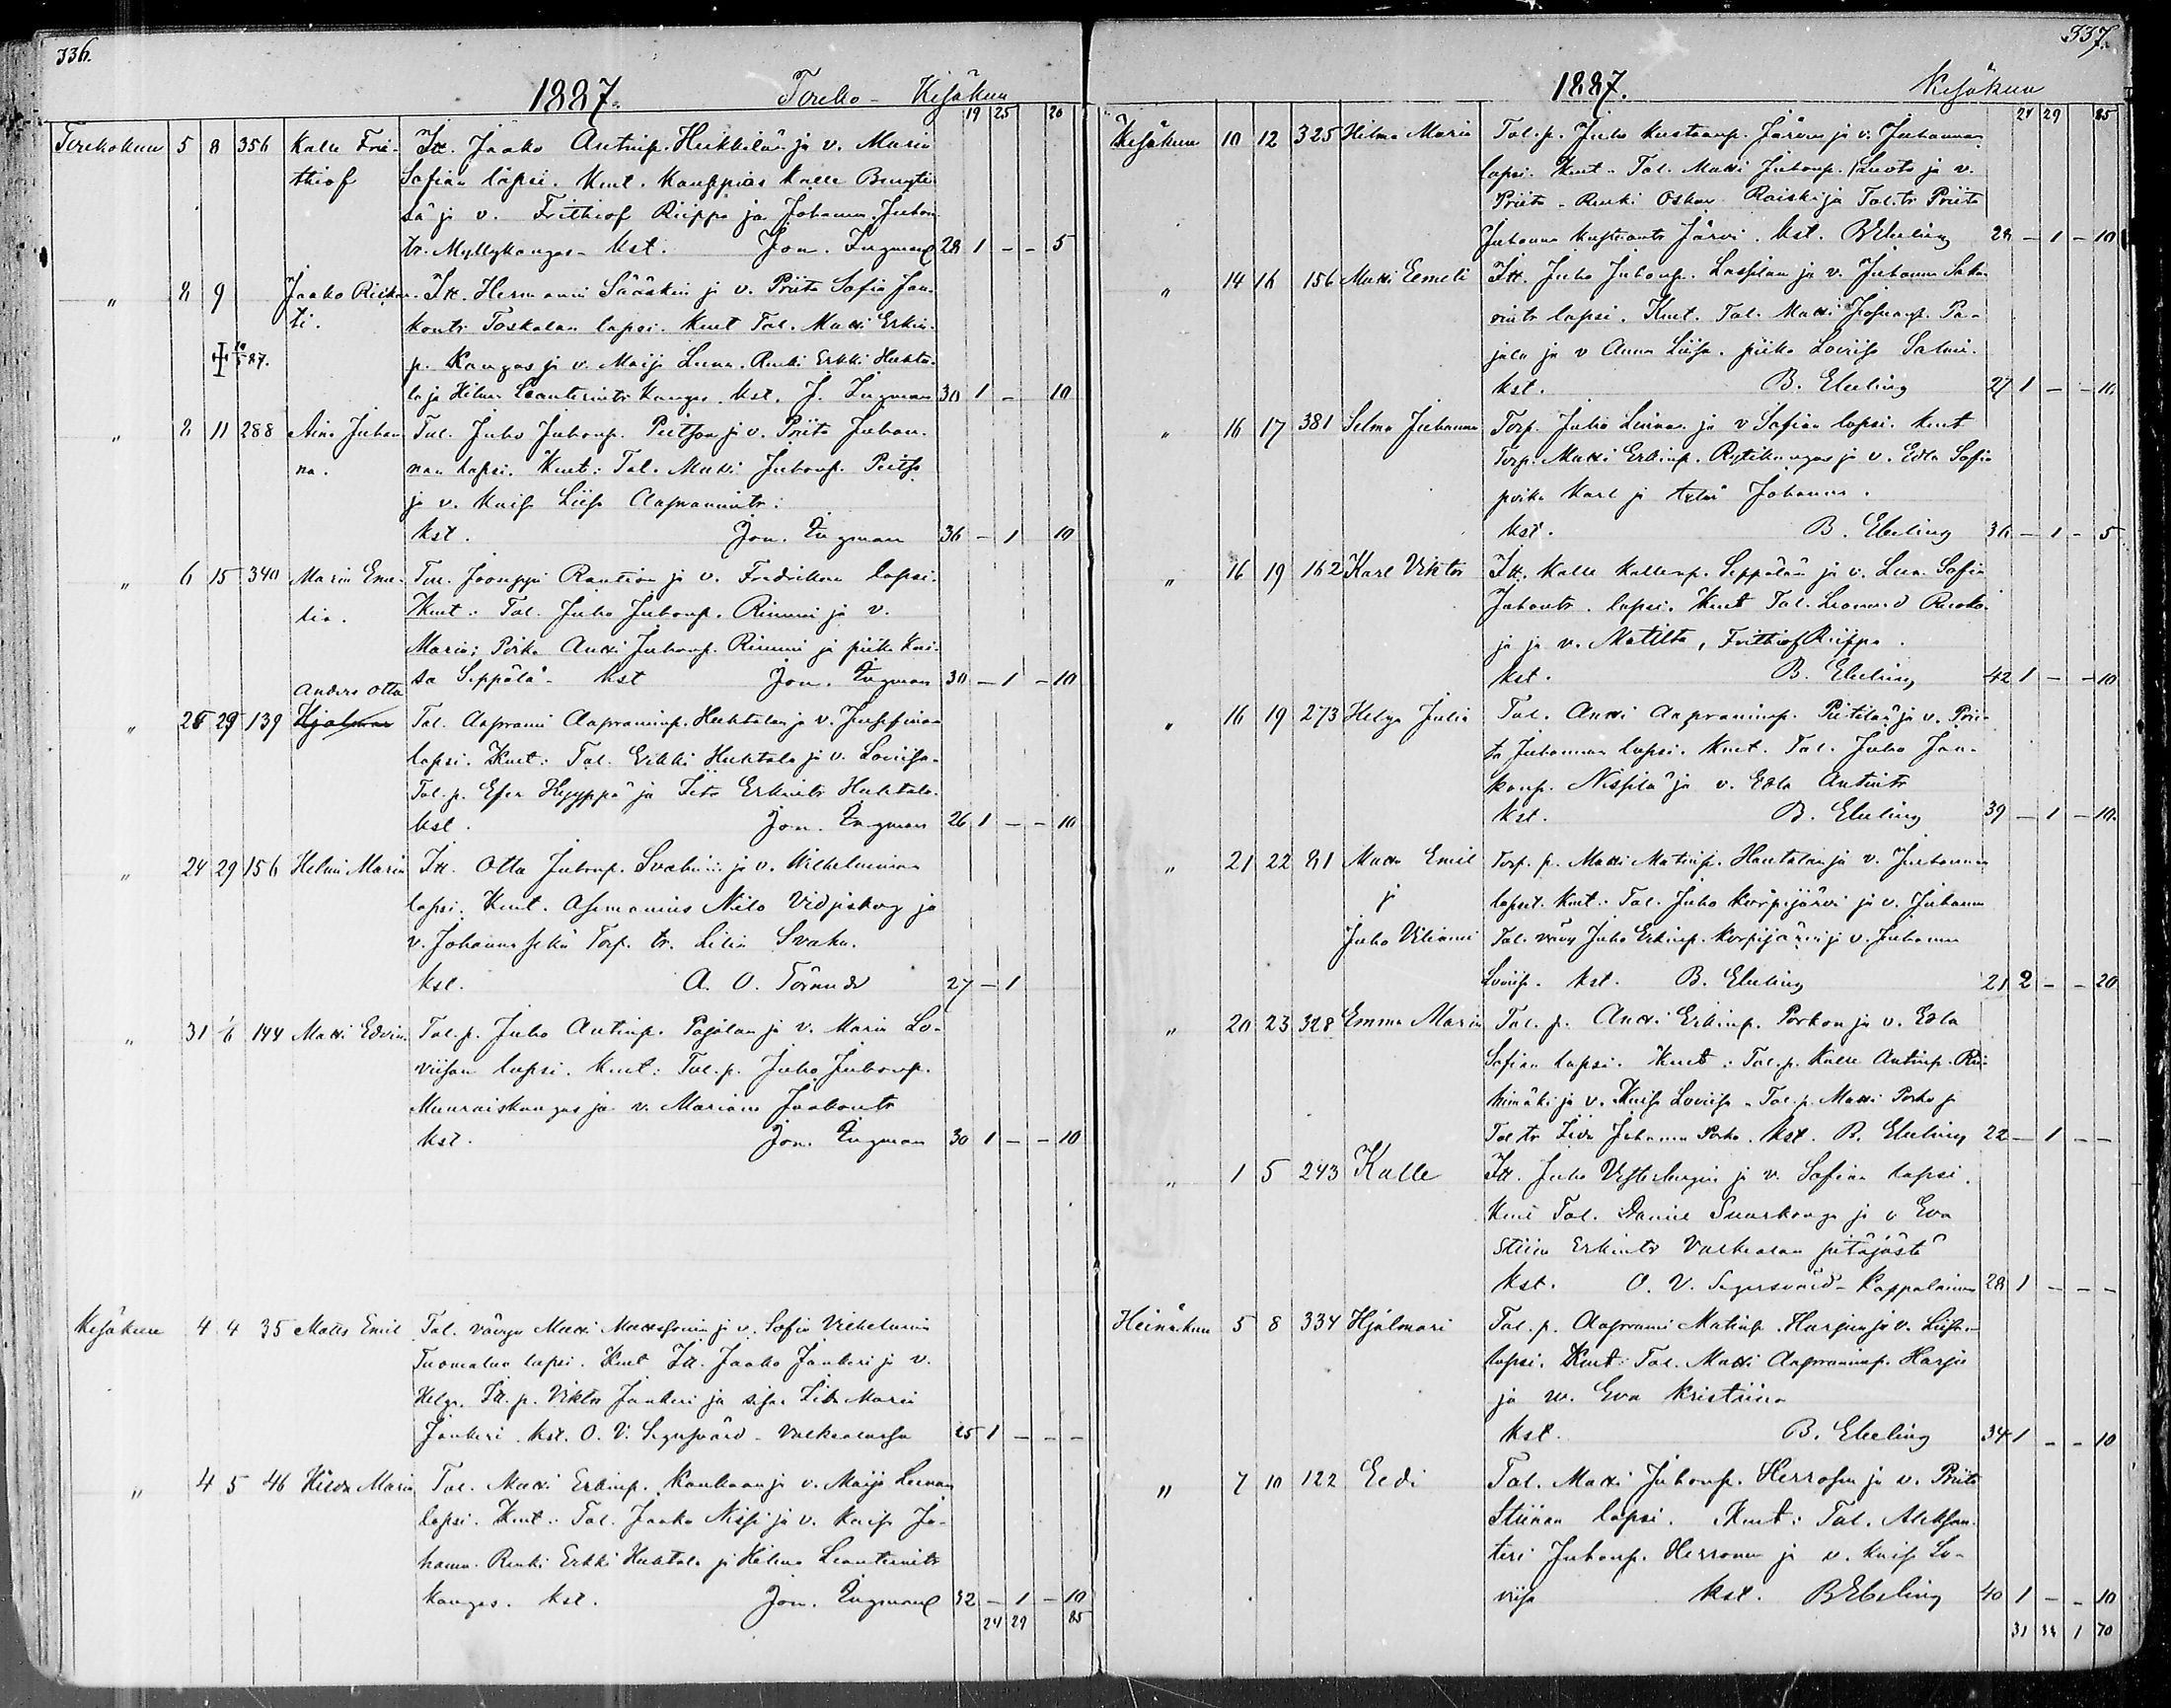 336.
1887. Touko- Kesäkuu
19 25 20
Toukokuu 5 8 356 Kalle Fri- Itt. Jaako Antinp. Heikkilän ja v. Maria
thiof Sofian lapsi. Kmt. Kauppias Kalle
ja v. Frithiof Riippa ja Johanna Juhon
tr. Myllykangas. kst. Jon. Ingman 28 1 - - 5
" 8 9 Jaako Itt. Hermanni Sääskin ja v. Priita Sofia Jaa-
ti. kontr Toskalan lapsi. Kmt Tal. Matti Erkin-
87. p. Kangas ja v. Maija Leena. Renki Erkki Huhta-
la ja Hilma Leanterintr Kangas. kst. J. Ingman 30 1 - 10
" 8 11 288 Aina Johan- Tal. Juho Juhonp. ja v. Priita Johan-
na. nan lapsi. Kmt: Tal. Matti Juhonp.
ja v. Kaisa Liisa Aapramintr.
kst. Jon. Ingman 36 - 1 10
" 6 15 340 Maria Ema- Tal. Jooseppi Rantion ja v. Fredrikan lapsi.
lia. Kmt: Tal. Juho Juhonp. Rimmi ja v.
Maria; Poika Antti Juhonp. Rimmi ja piika Kai-
sa Seppälä. kst Jon. Ingman 30 - 1 - 10
Anders Otto
" 28 29 139 Hjalmar Tal. Aaprami Aapraminp. Huhtalan ja v. Josefinan
lapsi. Kmt: Tal. Erkki Huhtala ja v. Loviisa.
Tal. p. Esa Hyyppä ja Iita Erkintr Huhtala.
kst. Jon. Ingman 26 1 - - 10
" 24 29 156 Helmi Maria Itt. Otto Juhonp. ja v. Wilhelminan
lapsi. Kmt. Nilo Vidjeskog ja
v. Johanna Torp. tr. Lilia
kst. A. O. Törnudd 27 - 1
" 31 6 144 Matti Edvin Tal. p. Juho Antinp. Pajalan ja v. Maria Lo-
viisan lapsi. Kmt: Tal. p. Juho Juhonp.
Muuraiskangas ja v. Maria Jaakontr
kst. Jon. Ingman 30 1 - - 10
Kesäkuu 4 4 35 Matts Emil Tal. vävyn Matti ja v. Sofia Vilhelmiina
Tuomalan lapsi. Kmt Itt. Jaako Junkeri ja v.
Helga. Itt. p. Viktor Junkeri ja sisar Maria
Junkeri. kst. O. V. Segersvärd. Valkealassa 25 1 - - -
" 4 5 46 Hilda Maria Tal. Matti Erkinp. ja v. Maija Leenan
lapsi. Kmt: Tal. Jaako ja v. Kaisa Jo-
hanna. Renki Erkki Huhtala ja Hilma Leanterintr
Kangas. kst. Jon. Ingman 32 - 1 - 10
24 29 85
337.
1887. Kesäkuu
24 29 85
Kesäkuu 10 12 325 Hilma Maria Tal. p. Juho Kustaanp. Järven ja v. Johannan
lapsi. Kmt. Tal. Matti Juhonp. Luoto ja v.
Priita. Renki Oskar Raiski ja Tal. tr Priita
Johanna Kustaantr Järvi. kst. B Ebeling 28 - 1 - 10
" 14 16 156 Matti Eemeli Itt. Juho Juhonp. Lassilan ja v. Johanna
lapsi. Kmt. Tal. Matti Pa-
jala ja v Anna Liisa. piika Loviisa Salmi.
kst. B. Ebeling 27 1 - - 10
" 16 17 381 Selma Johanna Torp. Juho ja v Sofian lapsi. Kmt
Torp. Matti Erkinp. Rytikangas ja v. Edla Sofia
poika Karl ja Johanna.
kst. B. Ebeling 36 - 1 - 5
" 16 19 162 Karl Viktor Itt. Kalle Kallenp. Seppälän ja v. Leena Sofia
Juhontr. lapsi. Kmt Tal. Leonard Ruoto-
ja ja v. Matilta, Frithiof Riippa.
kst. B. Ebeling 42 1 - - 10
" 16 19 273 Helga Julia Tal. Antti Aapraminp. ja v. Prii-
ta Johannan lapsi. Kmt. Tal. Juho Jaa-
konp. Nissilä ja v. Edla Antintr
kst. B. Ebeling 39 - 1 - 10.
" 21 22 81 Matti Emil Torp. p. Matti Matinp. Hautalan ja v. Johannan
ja lapset. Kmt: Tal. Juho Korpijärvi ja v. Johanna
Juho Viliami Tal. vävy Juho Erkinp. Korpijärvi ja v. Johanna
Loviisa. kst. B. Ebeling 21 2 - - 20
" 20 23 328 Emma Maria Tal. p. Antti Erkinp. Porkon ja v. Edla
Sofian lapsi. Kmt: Tal. p. Kalle Antinp. Rii-
himäki ja v. Kaisa Loviisa. Tal. p. Matti Porko ja
Tal tr Iida Johanna Porko. kst. B. Ebeling 22 - 1 - -
" 1 5 243 Kalle Itt. Juho ja v. Sofian lapsi.
Kmt Tal. Daniel ja v Eva
Stiina Erkintr Valkealan pitäjästä
kst. O. V. Segersvärd - Kappalainen 28 1 - - -
Heinäkuu 5 8 334 Hjalmari Tal. p. Aaprami Matinp. Harjun ja v. Liisan
lapsi. Kmt: Tal. Matti Aapraminp. Harju
ja w. Eva Kristiina
kst. B. Ebeling 34 1 - - 10
" 7 10 122 Eedi Tal. Matti Juhonp. Herrosen ja v. Priita
Stiinan lapsi. Kmt: Tal. Aleksan-
teri Juhonp. Herronen ja v. Kaisa Lo-
viisa kst. B Ebeling 40 1 - - 10
31 1 70